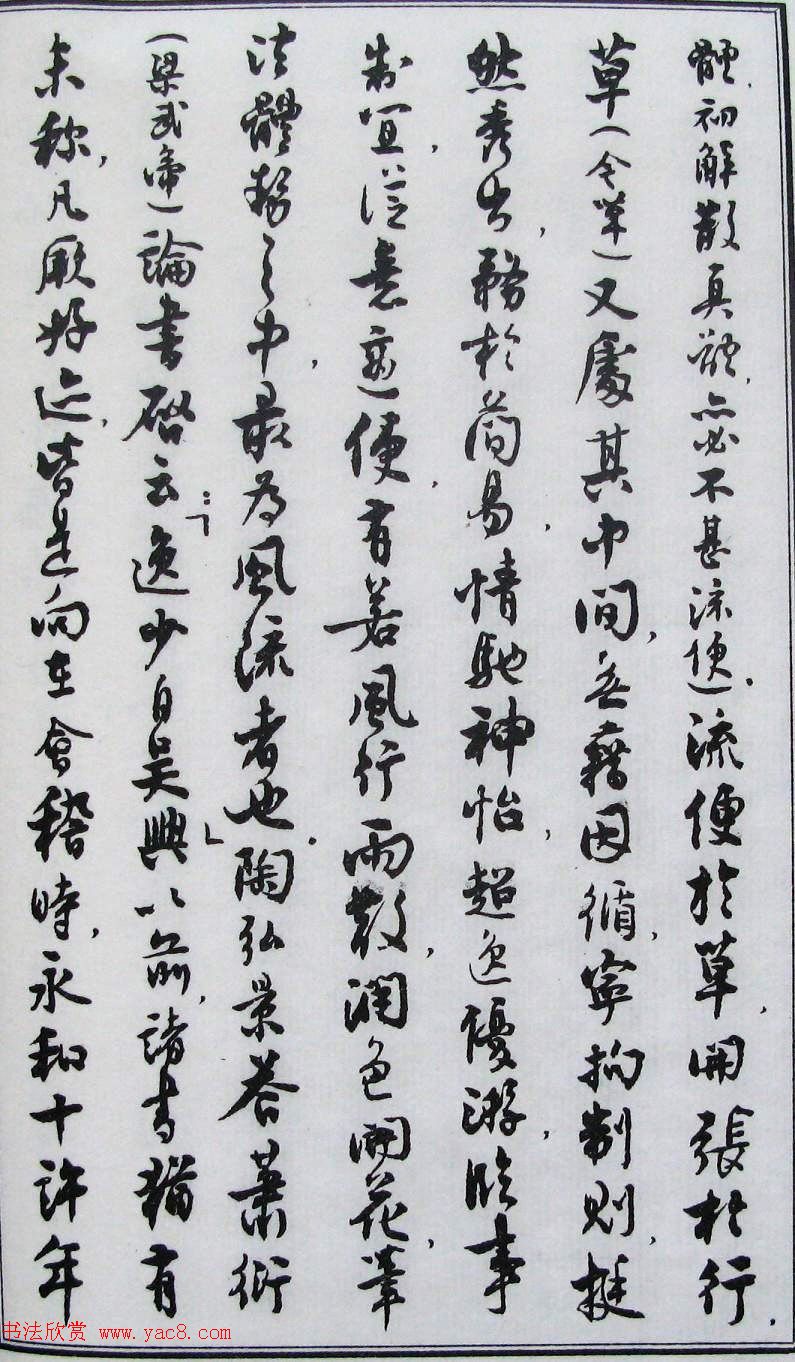 體，初解散真體，亦必不甚流便）。流便於草，開張於行，
草（今草）又處其中間，無藉因循，寧拘制則，挺
然秀出，務於簡易，情馳神怡，超逸優游，臨事
制宜，從意適便，有若風行雨散，潤色開花，筆
法體勢之中，最為風流者也。陶弘景答蕭衍
（梁武帝）論書啓云：「逸少自吳興以前，諸書猶有
未稱，凡厥好迹，皆是向在會稽時，永和十許年
书法欣赏 www.yac8.com